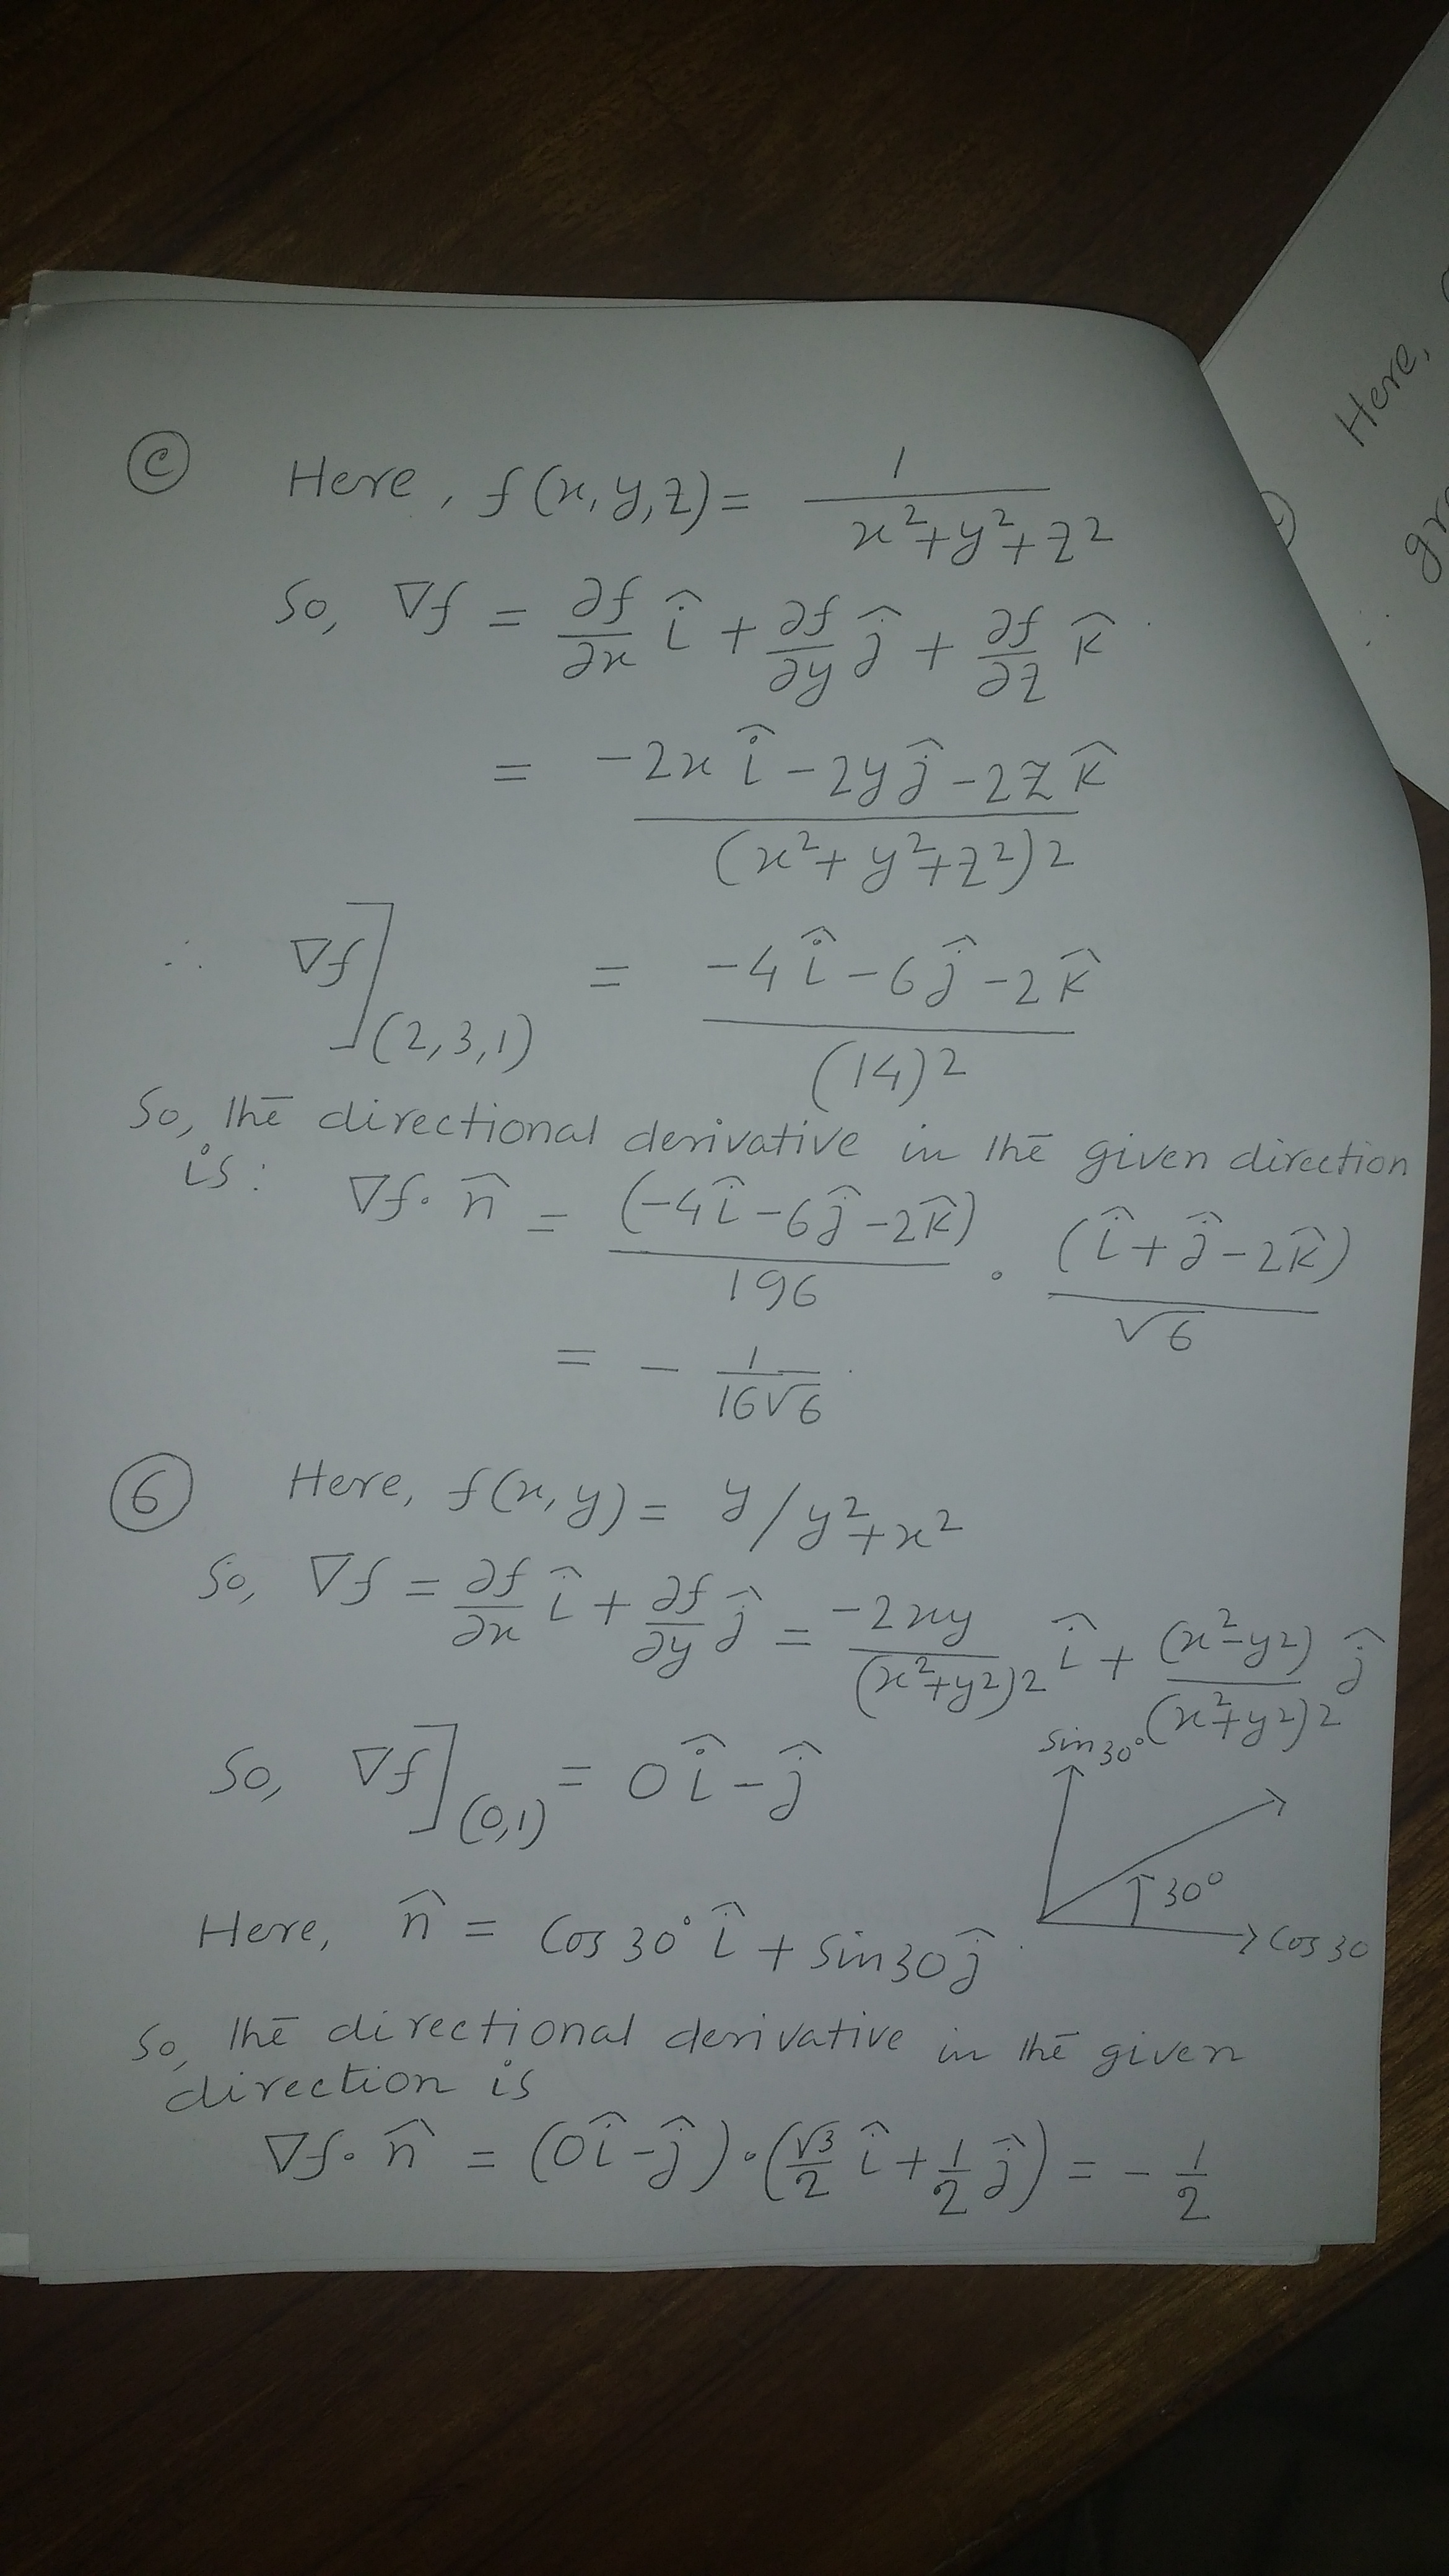 Here,
gr
∴
ⓒ Here, f(x,y,z) = 1/(x²+y²+z²)
So, ∇f = ∂f/∂x î + ∂f/∂y ĵ + ∂f/∂z k̂
= (-2x î - 2y ĵ - 2z k̂)/(x²+y²+z²)²
∴ ∇f](2,3,1) = (-4î - 6ĵ - 2k̂)/(14)²
So, the directional derivative in the given direction
is: ∇f · n̂ = (-4î - 6ĵ - 2k̂)/196 · (î + ĵ - 2k̂)/√6
= - 1/16√6
⑥ Here, f(x,y) = y/y²+x²
So, ∇f = ∂f/∂x î + ∂f/∂y ĵ = -2xy/(x²+y²)² î + (x²-y²)/(x²+y²)² ĵ
So, ∇f](0,1) = 0î - ĵ
sin30°
30°
Cos 30
Here, n̂ = Cos 30° î + Sin30 ĵ
So, the directional derivative in the given
direction is
∇f · n̂ = (0î - ĵ) · (√3/2 î + 1/2 ĵ) = - 1/2